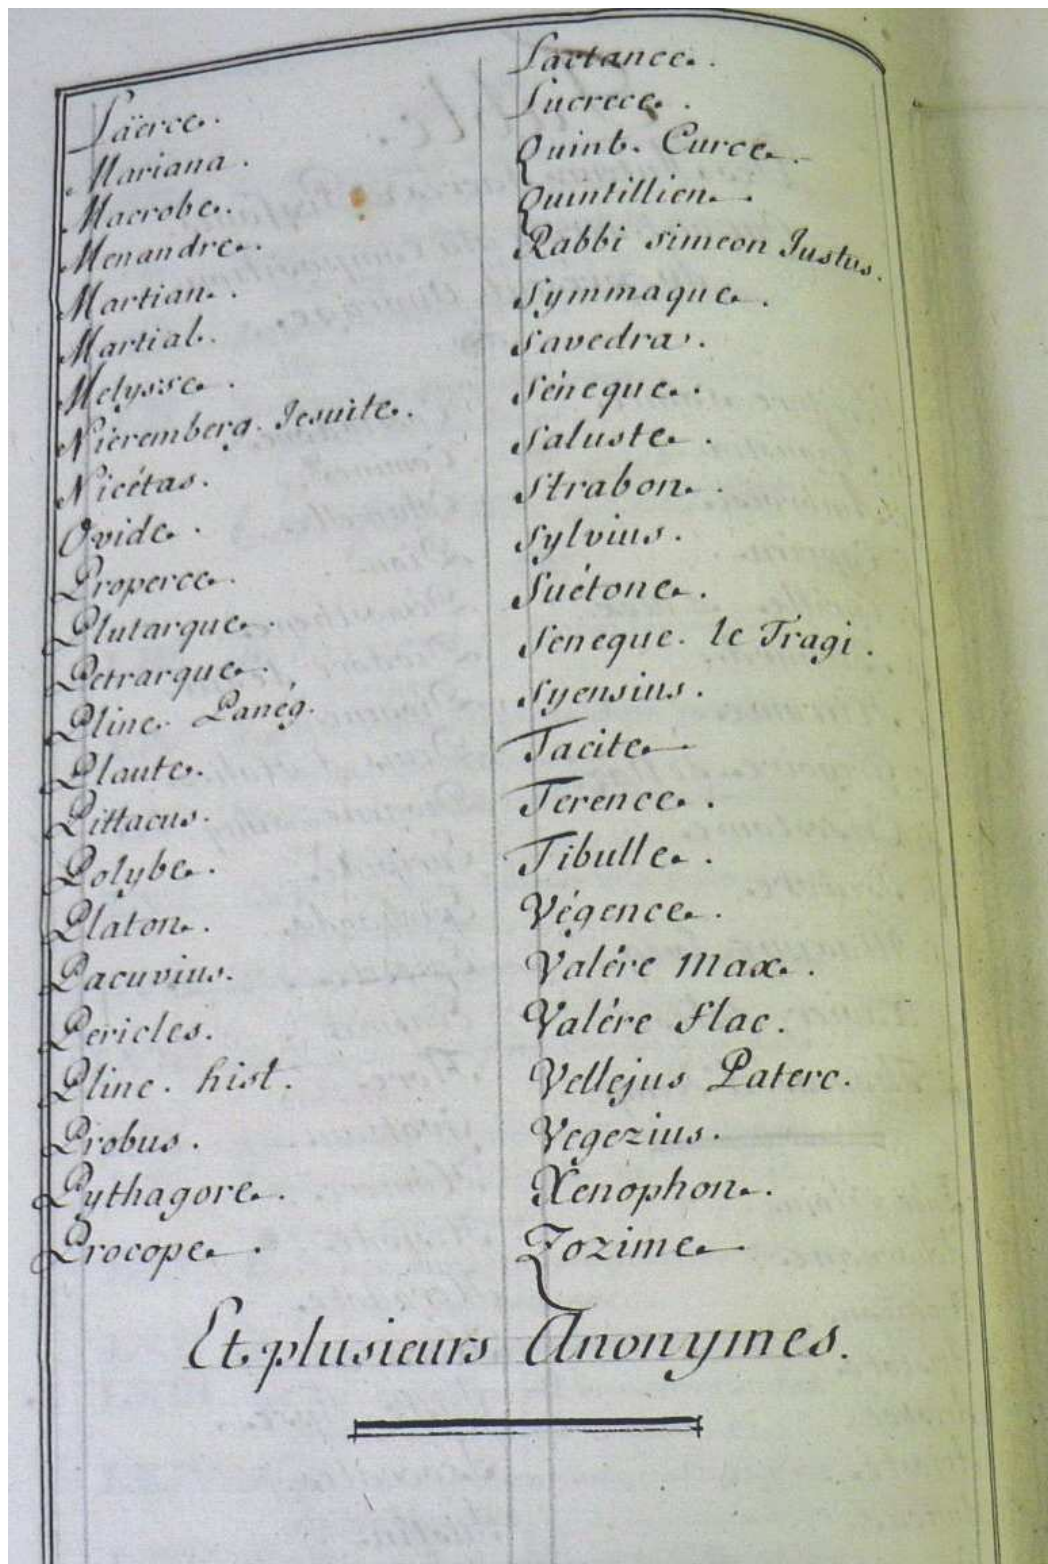 Laërce.
Mariana.
Macrobe.
Menandre.
Martian.
Martial.
Melysse.
Nieremberg. Jesuite.
Nicétas.
Ovide.
Properce.
Plutarque.
Petrarque.
Pline. Panég.
Plaute.
Pittacus.
Polybe.
Platon.
Pacuvius.
Pericles.
Pline. hist.
Probus.
Pythagore.
Procope.
Lactance.
Lucrece.
Quint. Curce.
Quintillien.
Rabbi simeon Justus.
Symmaque.
Savedra.
Séneque.
Saluste.
Strabon.
Sylvius.
Suétone.
Seneque. le Tragi.
Syensius.
Tacite
Terence.
Tibulle.
Végence.
Valére Max.
Valére flac.
Vellejus Paterc.
Vegezius.
Xenophon.
Zozime
Et plusieurs Anonymes.